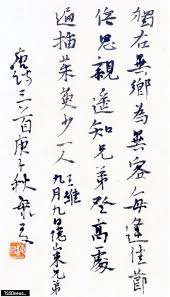 獨在異鄉為異客每逢佳節
倍思親遙知兄弟登高處
遍插茱萸少一人 王維
九月九日憶山東兄弟
唐詩三百庚子秋